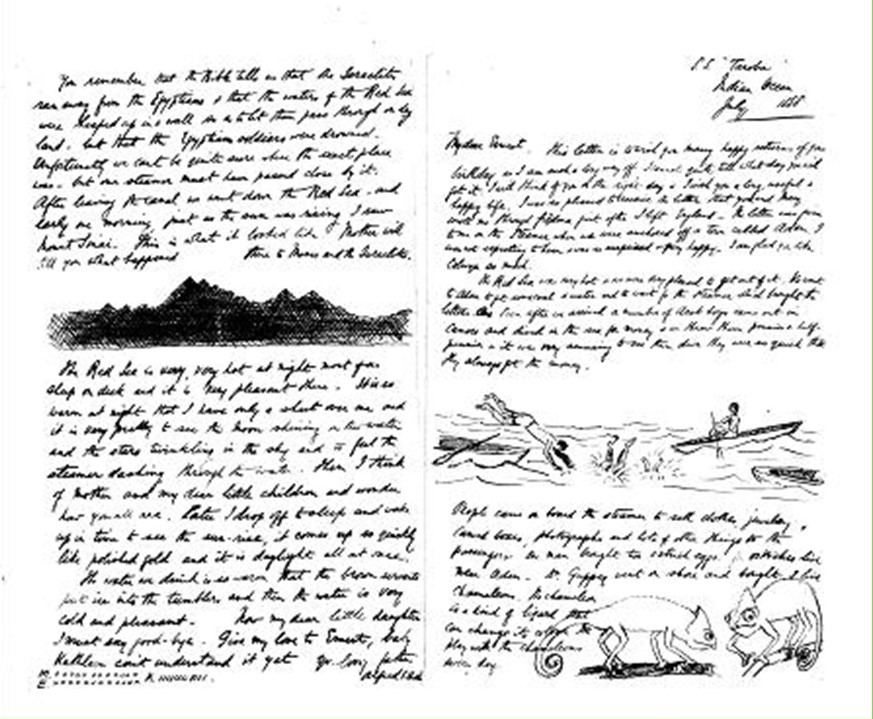 You remember that the Bible tells us that the Israelites
ran away from the Egyptians & that the waters of the Red Sea
were heaped up in a wall to let them pass through on dry
land. but that the Egyptian soldiers were drowned.
Unfortunately we can't be quite sure where the exact place
was. but our steamer must have passed close by it.
After leaving the canal we went down the Red Sea. and
early one morning just as the sun was rising I saw
Mount Sinai. This is what it looked like. Mother will
tell you what happened there to Moses and the Israelites.
The Red Sea is very, very hot at night most
sleep on deck and it is very pleasant there. It is so
warm at night that I have only a sheet over me and
it is very pretty to see the moon shining on the water
and the stars twinkling in the sky and to feel the
steamer dashing through the water. Then I think
of Mother and my dear little children and wonder
how you all are. Later I drop off to sleep and wake
up in time to see the sun-rise, it comes up so quickly
like polished gold and it is daylight all at once.
The water we drink is so warm that the brown servants
put ice into the tumblers and then the water is very
cold and pleasant. Now my dear little daughter
I must say good-bye. Give my love to Ernest, baby
Kathleen can't understand it yet yr. lovg father
S.S. "Taroba"
Indian Ocean
July
My dear Ernest. This letter is to wish you many happy returns of your
birthday as I am such a long way off. I cannot quite tell what day you will
get it. I will think of you on the right day & I wish you a long, useful &
happy life. I was so pleased to receive the letter that you and Mary
I left England. The letter was given
to me on the steamer when we were anchored off a town called Aden. I
was not expecting to hear & was so surprised & very happy. I am glad you like
so much.
The Red Sea was very hot & we were very pleased to get out of it. We went
to Aden to get some coal & water and to wait for the steamer that brought the
letters. Soon after we arrived a number of Arab boys came out in
canoes and dived in the sea for money & we threw them pennies & half-
pennies & it was very amusing to see them dive they were so quick that
they always got the money.
People came on board the steamer to sell clothes, jewelry,
carved boxes, photographs and lots of other things to the
passengers. One man bought two ostrich eggs. ostriches live
near Aden. Dr. Guppy went on shore and bought 2 live
chameleons. The chameleon
is a kind of lizard that
can change its colour. We
play with the chameleons
every day.